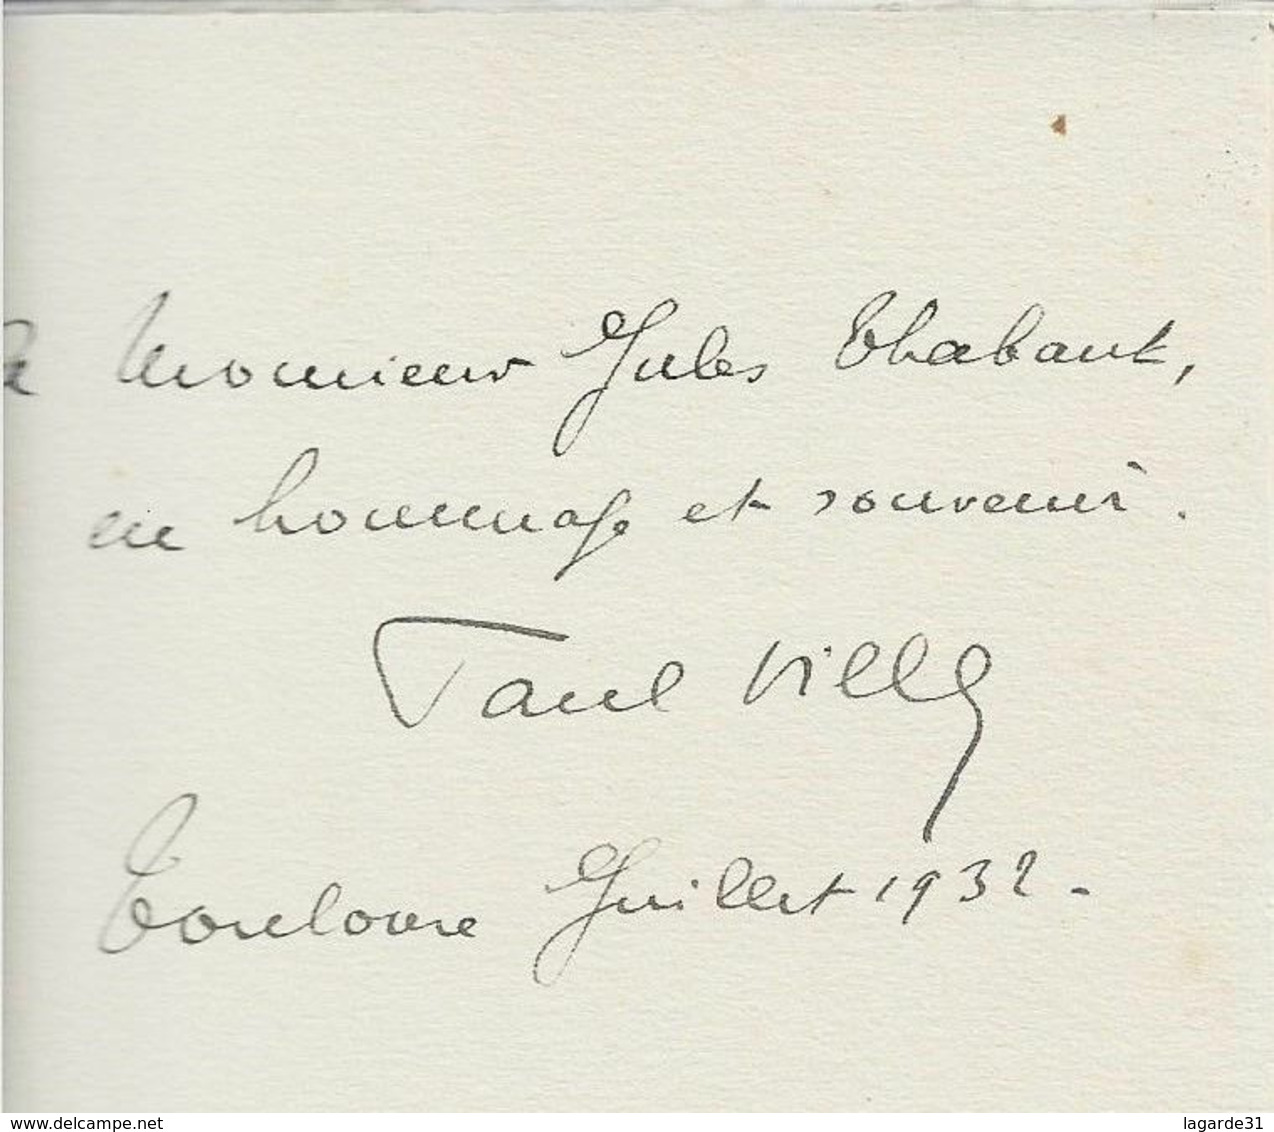 a Monsieur Jules Thabaut,
en hommage et souvenir.
Paul
Toulouse Juillet 1932 -
www.delcampe.net
lagarde31